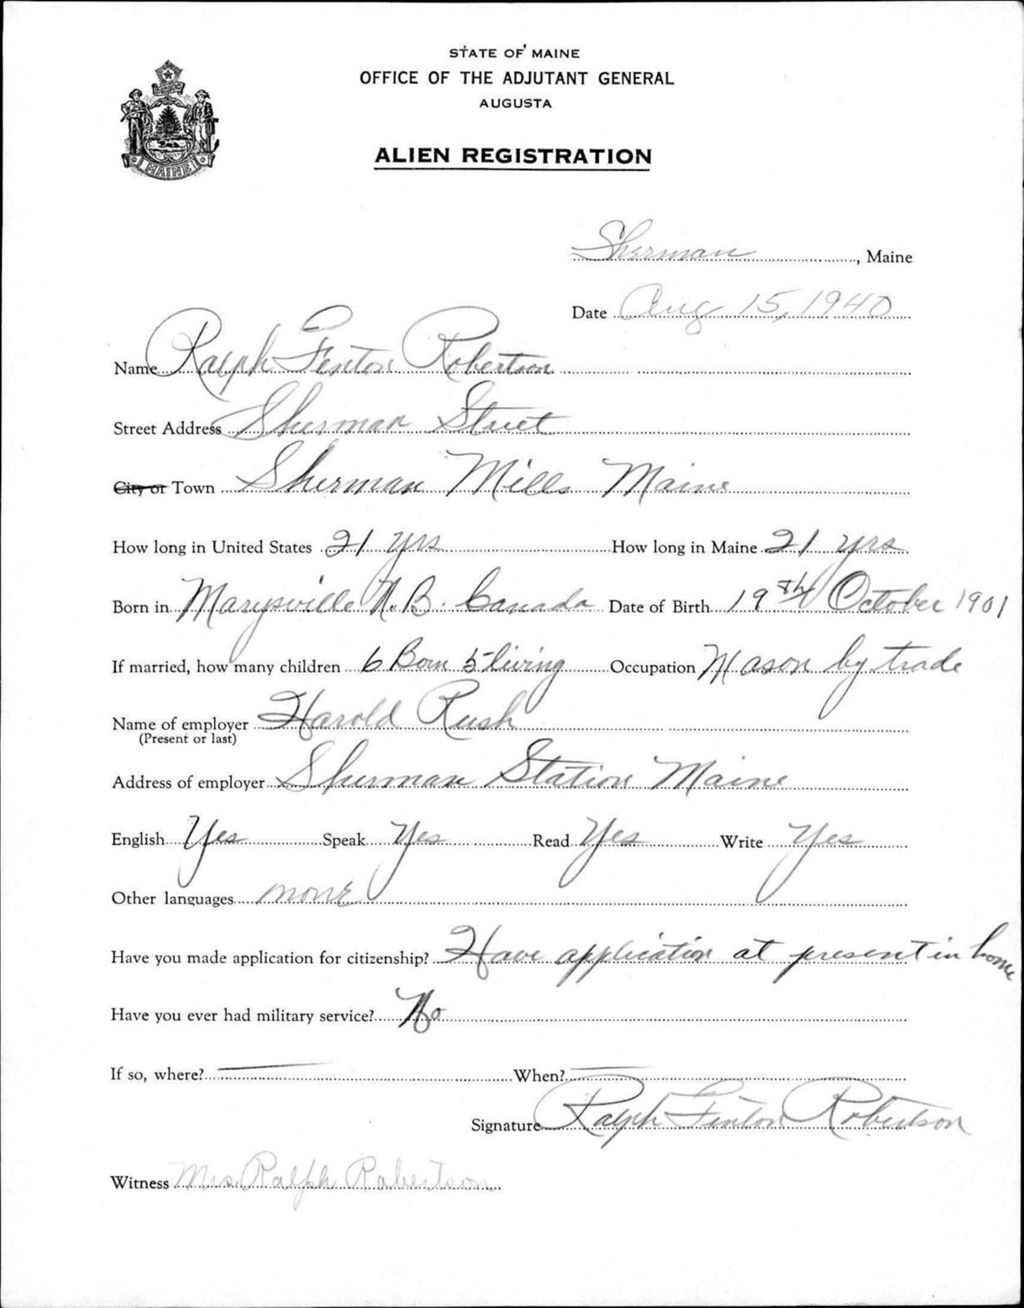 STATE OF MAINE
OFFICE OF THE ADJUTANT GENERAL
AUGUSTA
ALIEN REGISTRATION
MAINE
Sherman, Maine
Date Aug 15, 1940
Name Ralph Fenton Robertson
Street Address Sherman Street
City or Town Sherman Mills Maine
How long in United States 21 yrs How long in Maine 21 yrs
Born in Marysville N.B. Canada Date of Birth 19th October 1901
If married, how many children 6 Born 5 living Occupation Mason by trade
Name of employer Harold Rush
(Present or last)
Address of employer Sherman Station Maine
English Yes Speak Yes Read Yes Write Yes
Other languages none
Have you made application for citizenship? Have application at present in home
Have you ever had military service? No
If so, where? — When? —
Signature Ralph Fenton Robertson
Witness Mrs. Ralph Robertson